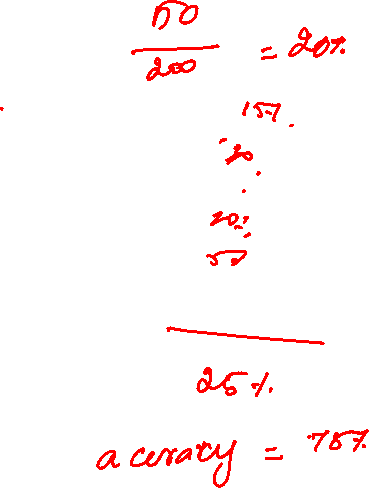 50
200 = 20%
15%
20
20%
25%
acuracy = 75%